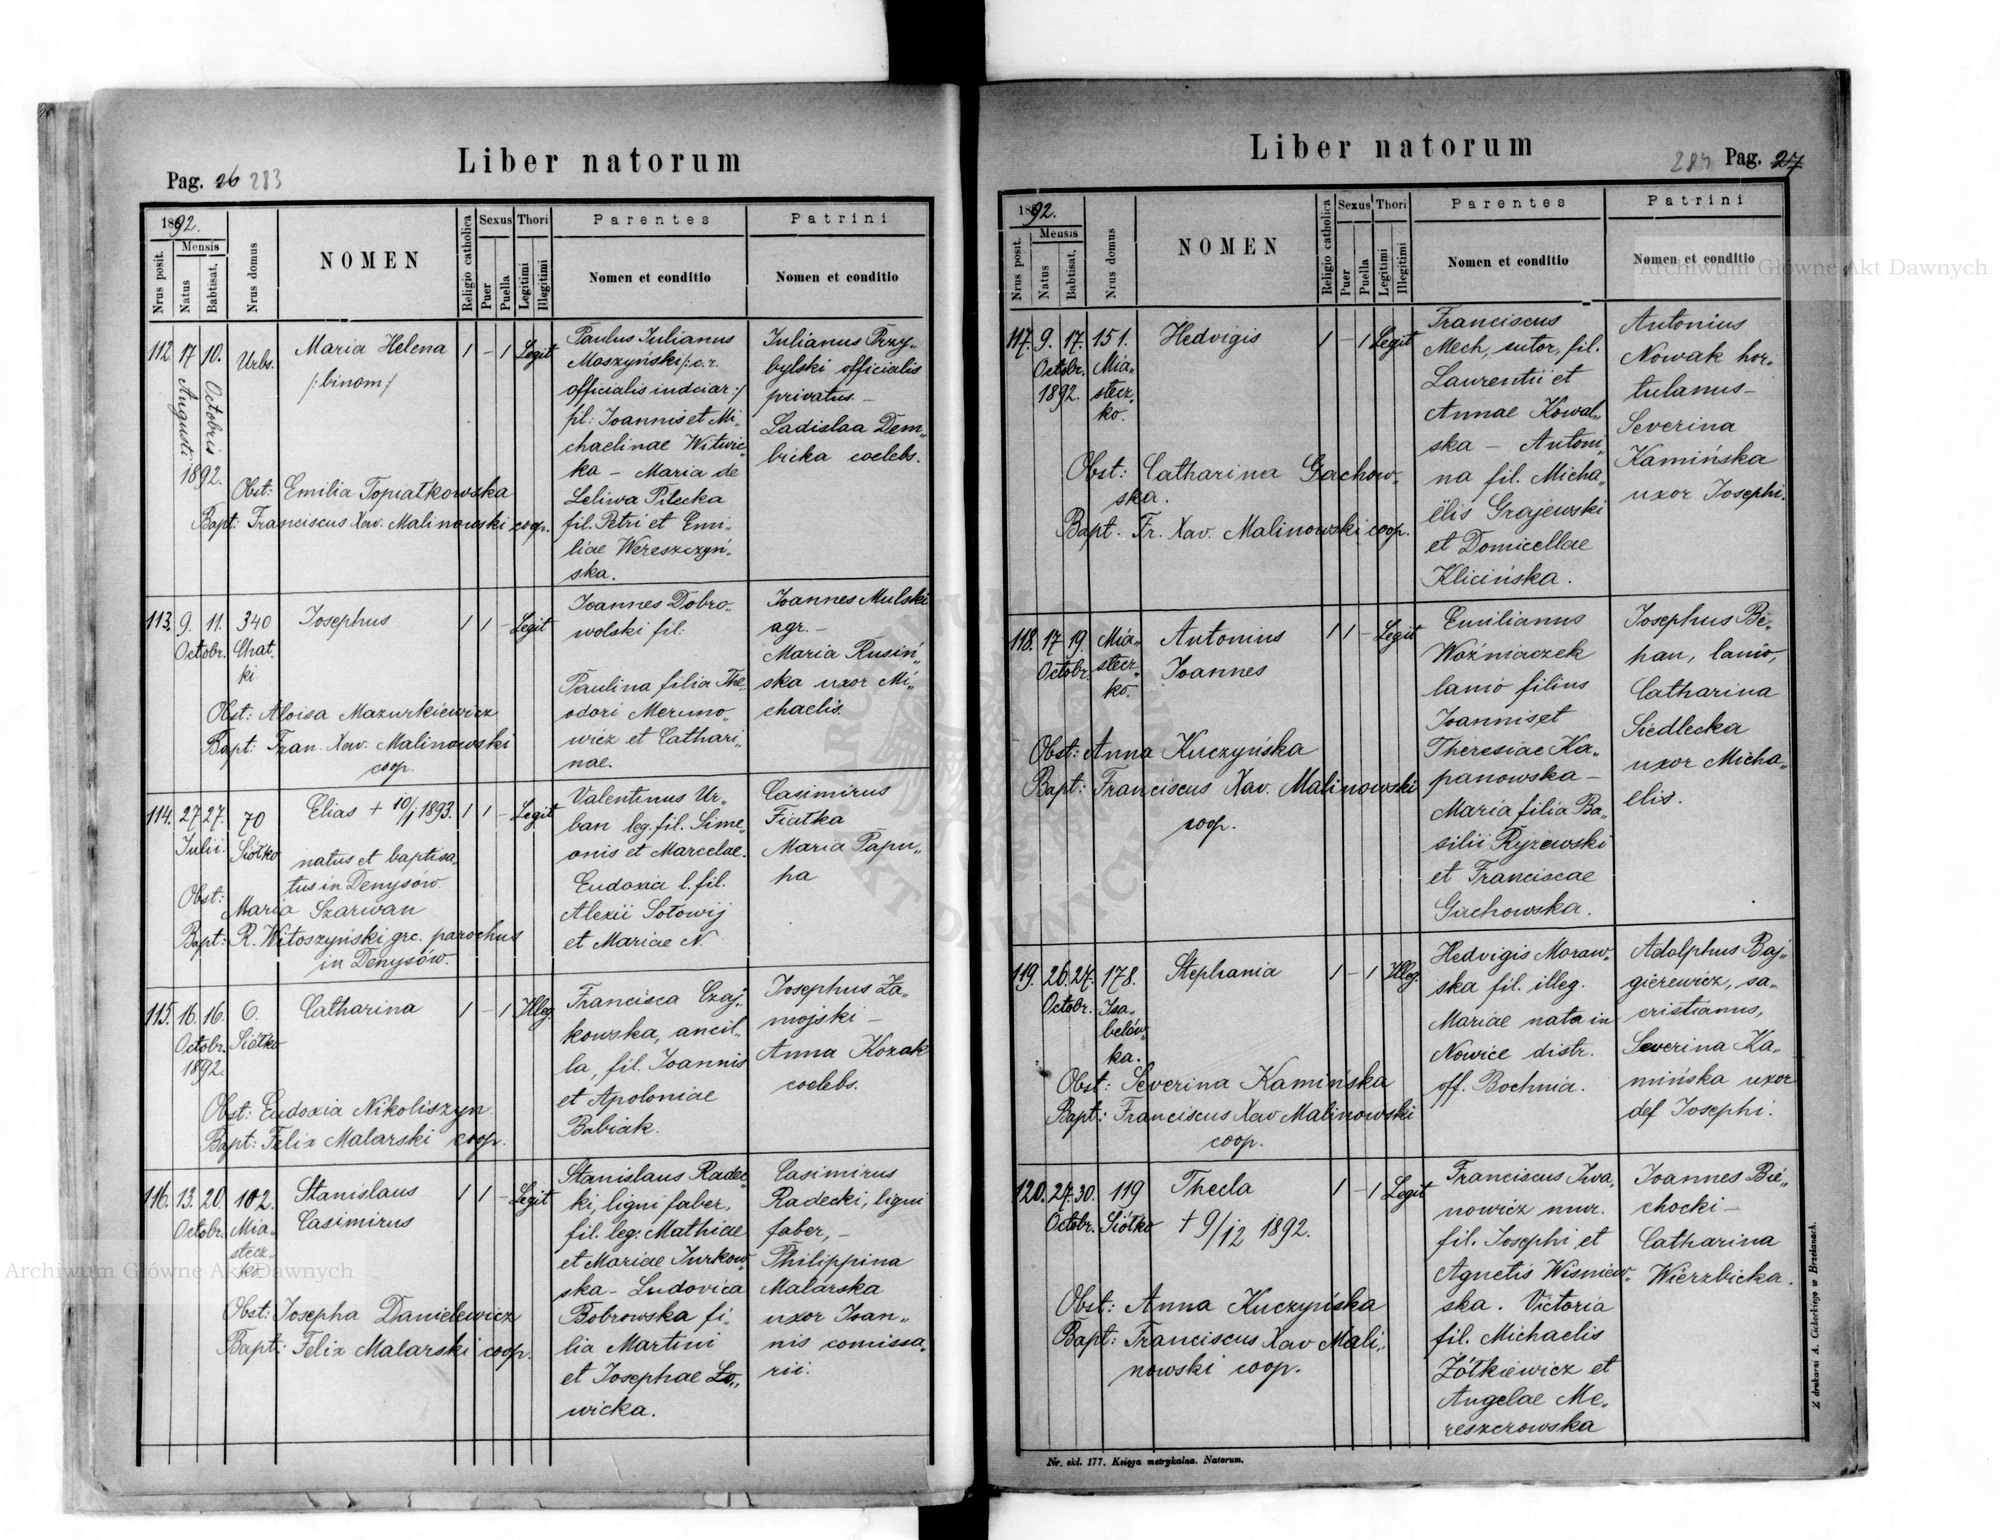 Liber natorum
Pag. 26 283
1892.
Nrus posit.
Mensis
Natus
Babtisat.
Nrus domus
NOMEN
Religio catholica
Sexus
Puer
Puella
Thori
Legitimi
Illegitimi
Parentes
Nomen et conditio
Patrini
Nomen et conditio
112. 17 10. Urbs. Maria Helena 1 – 1 Legit
Augusti
Octobris
1892.
/:binom:/
Obst: Emilia Topiatkowska
Bapt: Franciscus Xav. Malinowski coop.
Paulus Iulianus
Moszyński /:c. r.
officialis indciar:/
fil: Ioannis et Mi„
chaelinae Witwic„
ka – Maria de
Leliwa Pilecka
fil. Petri et Emi„
liae Wereszczyń„
ska.
Iulianus Przy„
bylski officialis
privatus. –
Ladislaa Dem„
bicka coelebs.
113. 9. 11. 340 Iosephus 1 1 – Legit
Octobr. Chat„
ki
Obst: Aloisa Mazurkiewicz
Bapt: Fran. Xav. Malinowski
coop.
Ioannes Dobro„
wolski fil:
Paulina filia The„
odori Meruno„
wicz et Cathari„
nae.
Ioannes Mulski
agr. –
Maria Rusiń„
ska uxor Mi„
chaelis.
114. 27 27. 70 Elias + 10/I 1893. 1 1 – Legit
Iulii. Siółko
natus et baptisa„
tus in Denysów.
Obst:
Maria Szarwan
Bapt: R. Witoszyński grc. parochus
in Denysów.
Valentinus Ur„
ban leg. fil. Sime„
onis et Marcelae.
Eudoxia l. fil.
Alexii Sołowij
et Mariae N.
Casimirus
Fiatka
Maria Papu„
ha
115. 16. 16. 6. Catharina 1 – 1 Illeg.
Octobr. Siółko
1892.
Obst: Eudoxia Nikoliszyn
Bapt: Felix Malarski coop.
Francisca Czaj„
kowska, ancil„
la, fil. Ioannis
et Apoloniae
Babiak.
Iosephus Za„
mojski –
Anna Kozak
coelebs.
116. 13. 20. 102. Stanislaus 1 1 – Legit
Octobr. Mia„ Casimirus
stecz„
ko
Obst: Iosepha Danielewicz
Bapt: Felix Malarski coop.
Stanislaus Radec„
ki, ligni faber,
fil. leg. Mathiae
et Mariae Iurkow„
ska – Ludovica
Bobrowska fi„
lia Martini
et Iosephae Lo„
wicka.
Casimirus
Radecki, ligni
faber, –
Philippina
Malarska
uxor Ioan„
nis comissa„
rii.
Liber natorum
284 Pag. 27
1892.
Nrus posit.
Mensis
Natus
Babtisat.
Nrus domus
NOMEN
Religio catholica
Sexus
Puer
Puella
Thori
Legitimi
Illegitimi
Parentes
Nomen et conditio
Patrini
Nomen et conditio
117. 9. 17. 151. Hedvigis 1 – 1 Legit
Octobr. Mia„
1892. stecz„
ko.
Obst: Catharina Gachow„
ska.
Bapt. Fr. Xav. Malinowski coop.
Franciscus
Mech, sutor, fil.
Laurentii et
Annae Kowal„
ska – Antoni„
na fil. Micha„
ëlis Grajewski
et Domicellae
Klicińska.
Antonius
Nowak hor„
tulanus –
Severina
Kamińska
uxor Iosephi.
118. 17 19. Mia„ Antonius 1 1 – Legit
Octobr. stecz„ Ioannes
ko.
Obst: Anna Kuczyńska
Bapt: Franciscus Xav. Malinowski
coop.
Emilianus
Woźniaczek
lanio filius
Ioannis et
Theresiae Ka„
panowska –
Maria filia Ba„
silii Ryżewski
et Franciscae
Gachowska.
Iosephus Be„
han, lanio,
Catharina
Siedlecka
uxor Micha„
elis.
119. 26. 27. 178. Stephania 1 – 1 Illeg.
Octobr. Iza„
belów„
ka.
Obst: Severina Kamińska
Bapt: Franciscus Xav Malinowski
coop.
Hedvigis Moraw„
ska fil. illeg.
Mariae nata in
Nowice distr.
off. Bochnia.
Adolphus Baj„
gierewicz, sa„
cristianus,
Severina Ka„
mińska uxor
def Iosephi.
120. 27. 30. 119 Thecla 1 – 1 Legit
Octobr. Siółko + 9/12 1892.
Obst: Anna Kuczyńska
Bapt: Franciscus Xav Mali„
nowski coop.
Franciscus Iwa„
nowicz mur.
fil. Iosephi et
Agnetis Wisniew„
ska. Victoria
fil. Michaelis
Żółkiewicz et
Angelae Me„
reszczowska
Ioannes Bie„
chocki –
Catharina
Wierzbicka.
Nr. skł. 177. Księga metrykalna. Natorum.
Z drukarni A. Cichockiego w Brzeżanach.
Archiwum Główne Akt Dawnych
Archiwum Główne Akt Dawnych